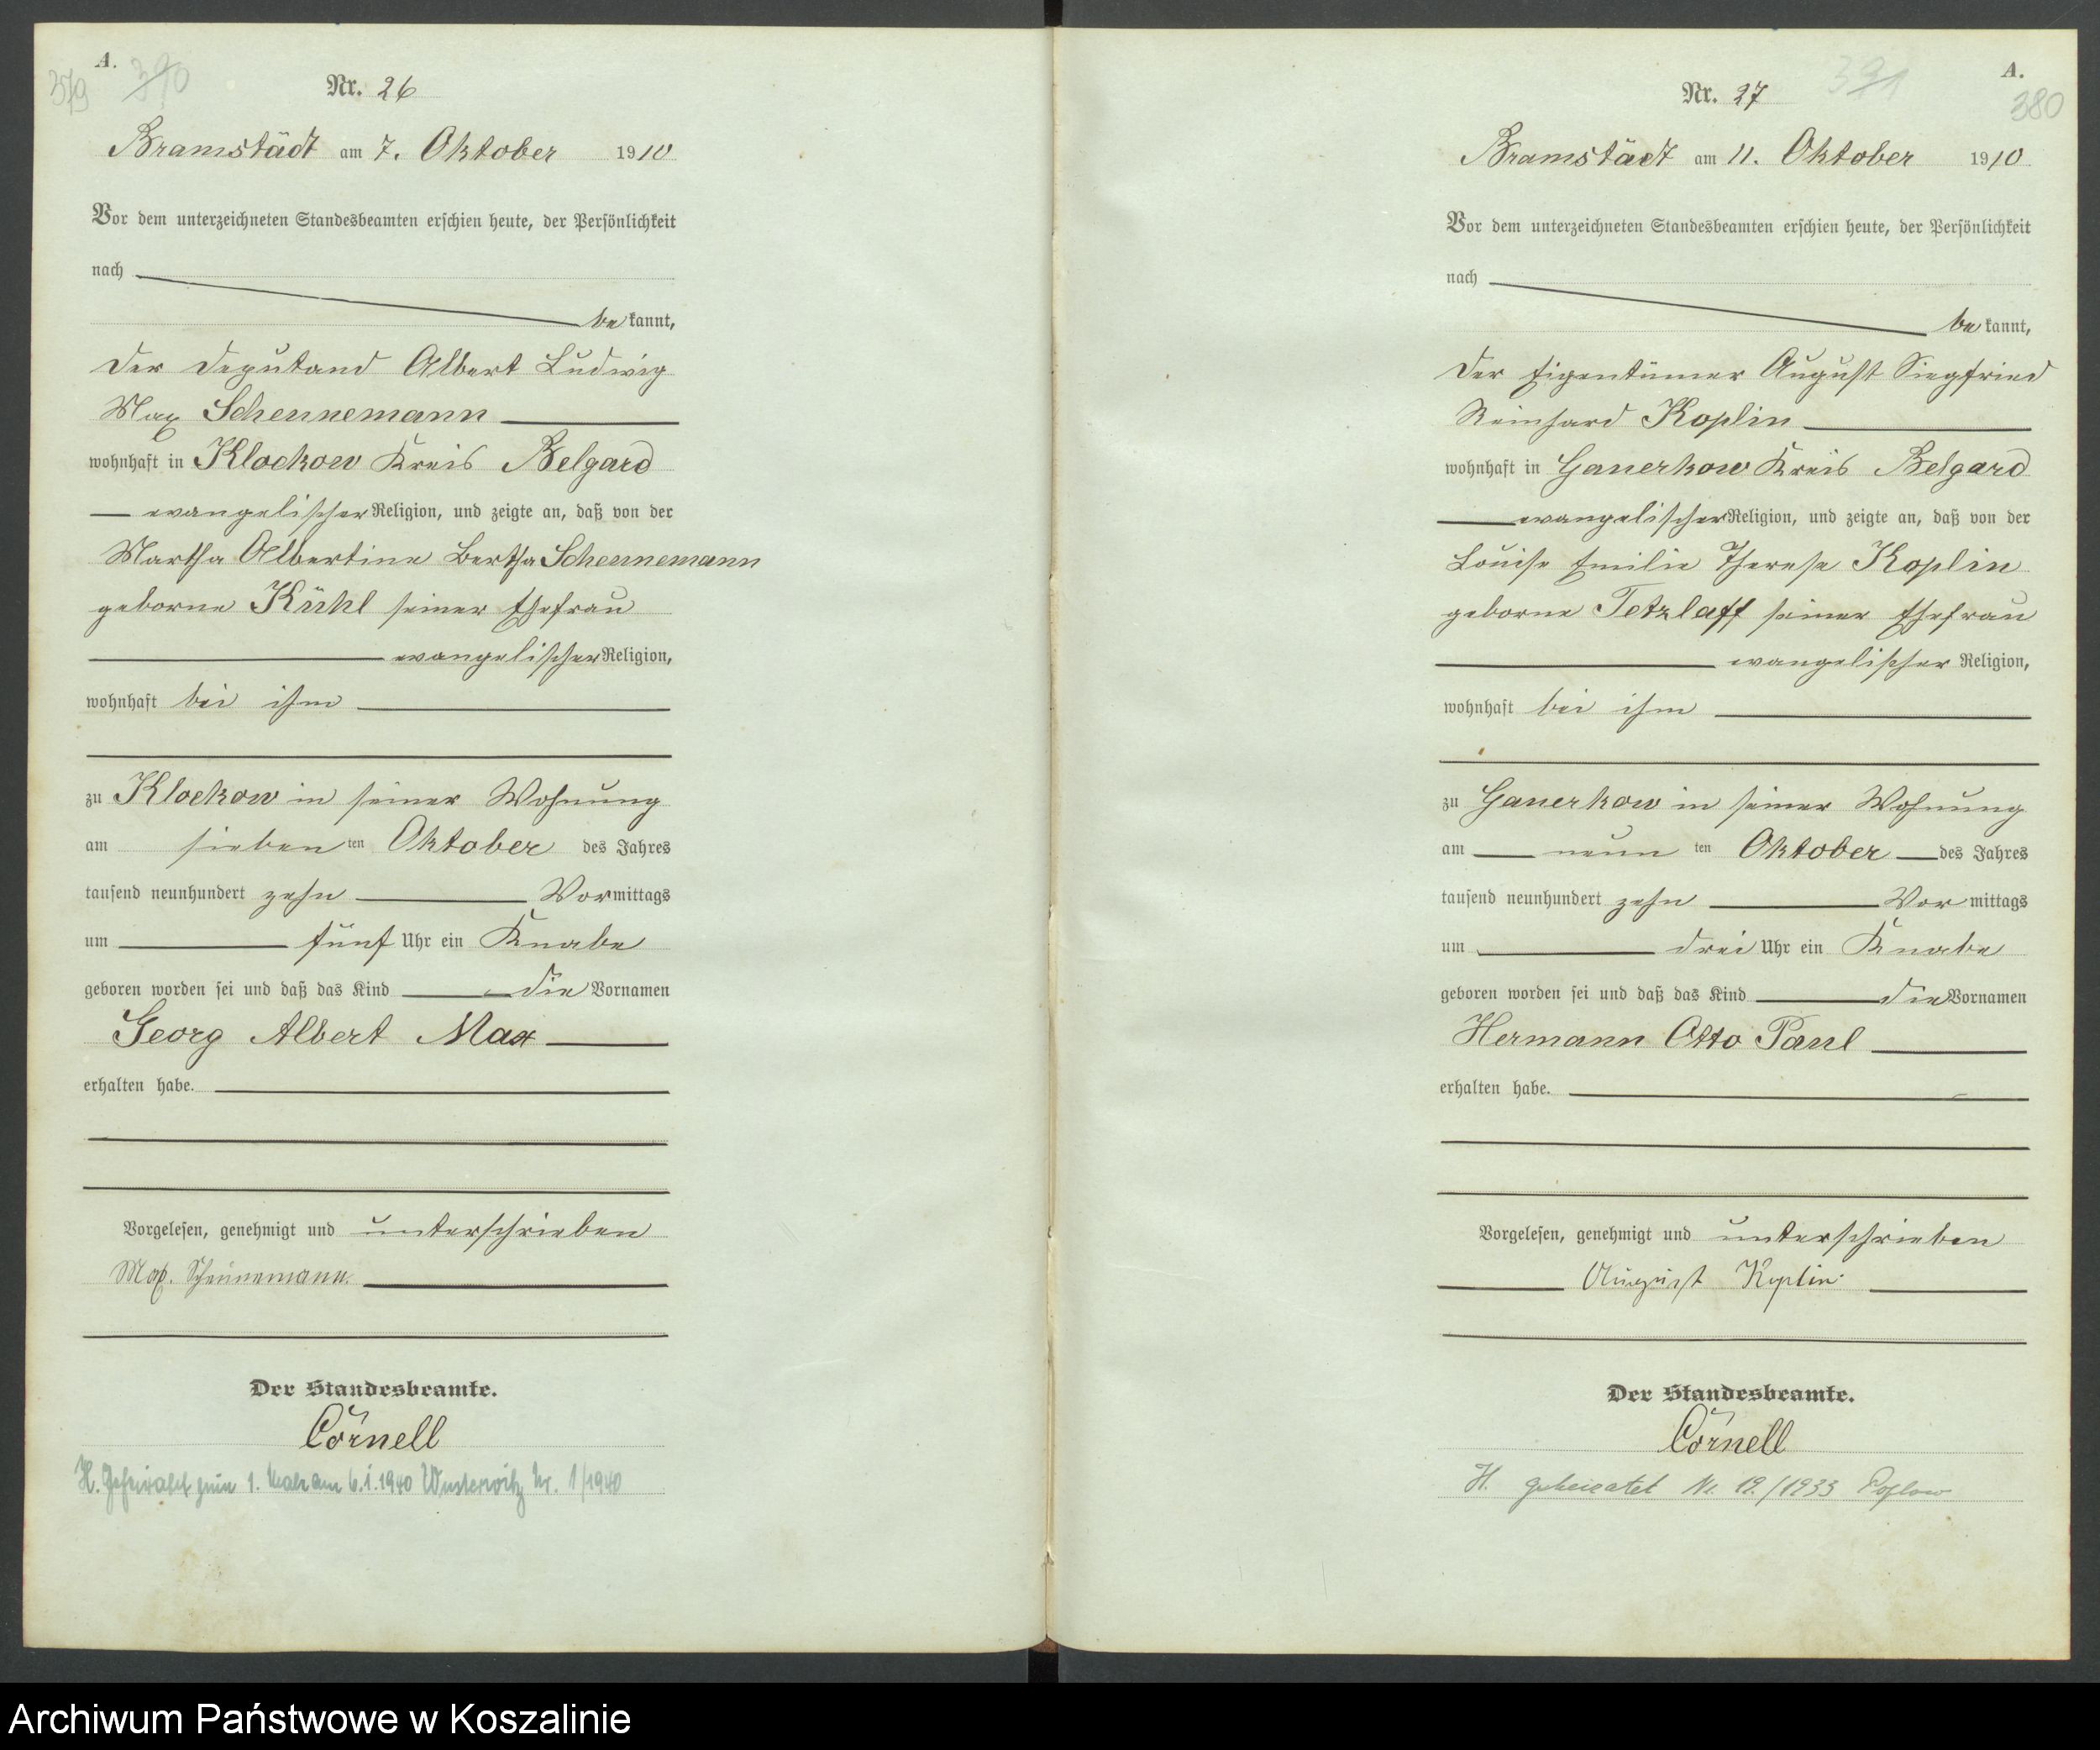 A.
379 390
Nr. 26
Bramstädt am 7. Oktober 1910
Vor dem unterzeichneten Standesbeamten erschien heute, der Persönlichkeit
nach
bekannt,
der Deputand Albert Ludwig
Max Scheunemann
wohnhaft in Klockow Kreis Belgard
evangelischer Religion, und zeigte an, daß von der
Martha Albertine Bertha Scheunemann
geborne Kühl seiner Ehefrau
evangelischer Religion,
wohnhaft bei ihm
zu Klockow in seiner Wohnung
am siebenten Oktober des Jahres
tausend neunhundert zehn Vormittags
um fünf Uhr ein Knabe
geboren worden sei und daß das Kind die Vornamen
Georg Albert Max
erhalten habe.
Vorgelesen, genehmigt und unterschrieben
Max. Scheunemann.
Der Standesbeamte.
Cörnell
H. Geheiratet zum 1. Male am 6.1.1940 Wusterwitz Nr. 1/1940
A.
391
380
Nr. 27
Bramstädt am 11. Oktober 1910
Vor dem unterzeichneten Standesbeamten erschien heute, der Persönlichkeit
nach
bekannt,
der Eigentümer August Siegfried
Reinhard Koplin
wohnhaft in Ganerkow Kreis Belgard
evangelischer Religion, und zeigte an, daß von der
Louise Emilie Therese Koplin
geborne Tetzlaff seiner Ehefrau
evangelischer Religion,
wohnhaft bei ihm
zu Ganerkow in seiner Wohnung
am neunten Oktober des Jahres
tausend neunhundert zehn Vormittags
um drei Uhr ein Knabe
geboren worden sei und daß das Kind die Vornamen
Hermann Otto Paul
erhalten habe.
Vorgelesen, genehmigt und unterschrieben
August Koplin.
Der Standesbeamte.
Cörnell
H. geheiratet Nr. 19./1933 Poplow
Archiwum Państwowe w Koszalinie